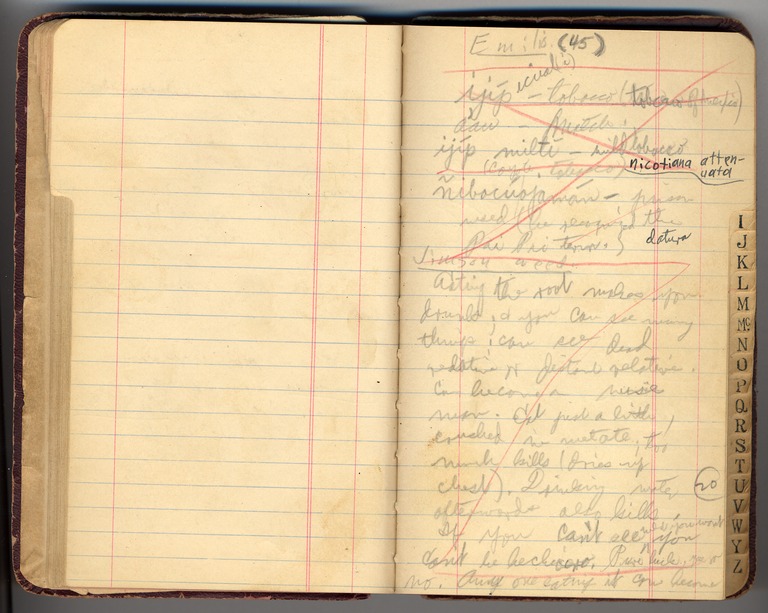 Emilio (45)
ijíp - tobacco (tobacco
ijíp milti - wild tobacco
(Coyote tobacco) nicotiana atten-
uata
- poison
weed (he recognized the
Pai Pai term.) datura
Jimson weed
Eating the root makes you
drunk & you can see many
things; can see dead
relative or distant relative.
Can become a
man. Eat just a little,
crushed in metate, too
much kills (dries up
chest). Drinking water 20
afterwards also kills
If you can't see you
can't be hechicero. Pure luck, yes or
no. Any one eating it can become
I
J
K
L
M
Mc
N
O
P
Q
R
S
T
U
V
W
Y
Z